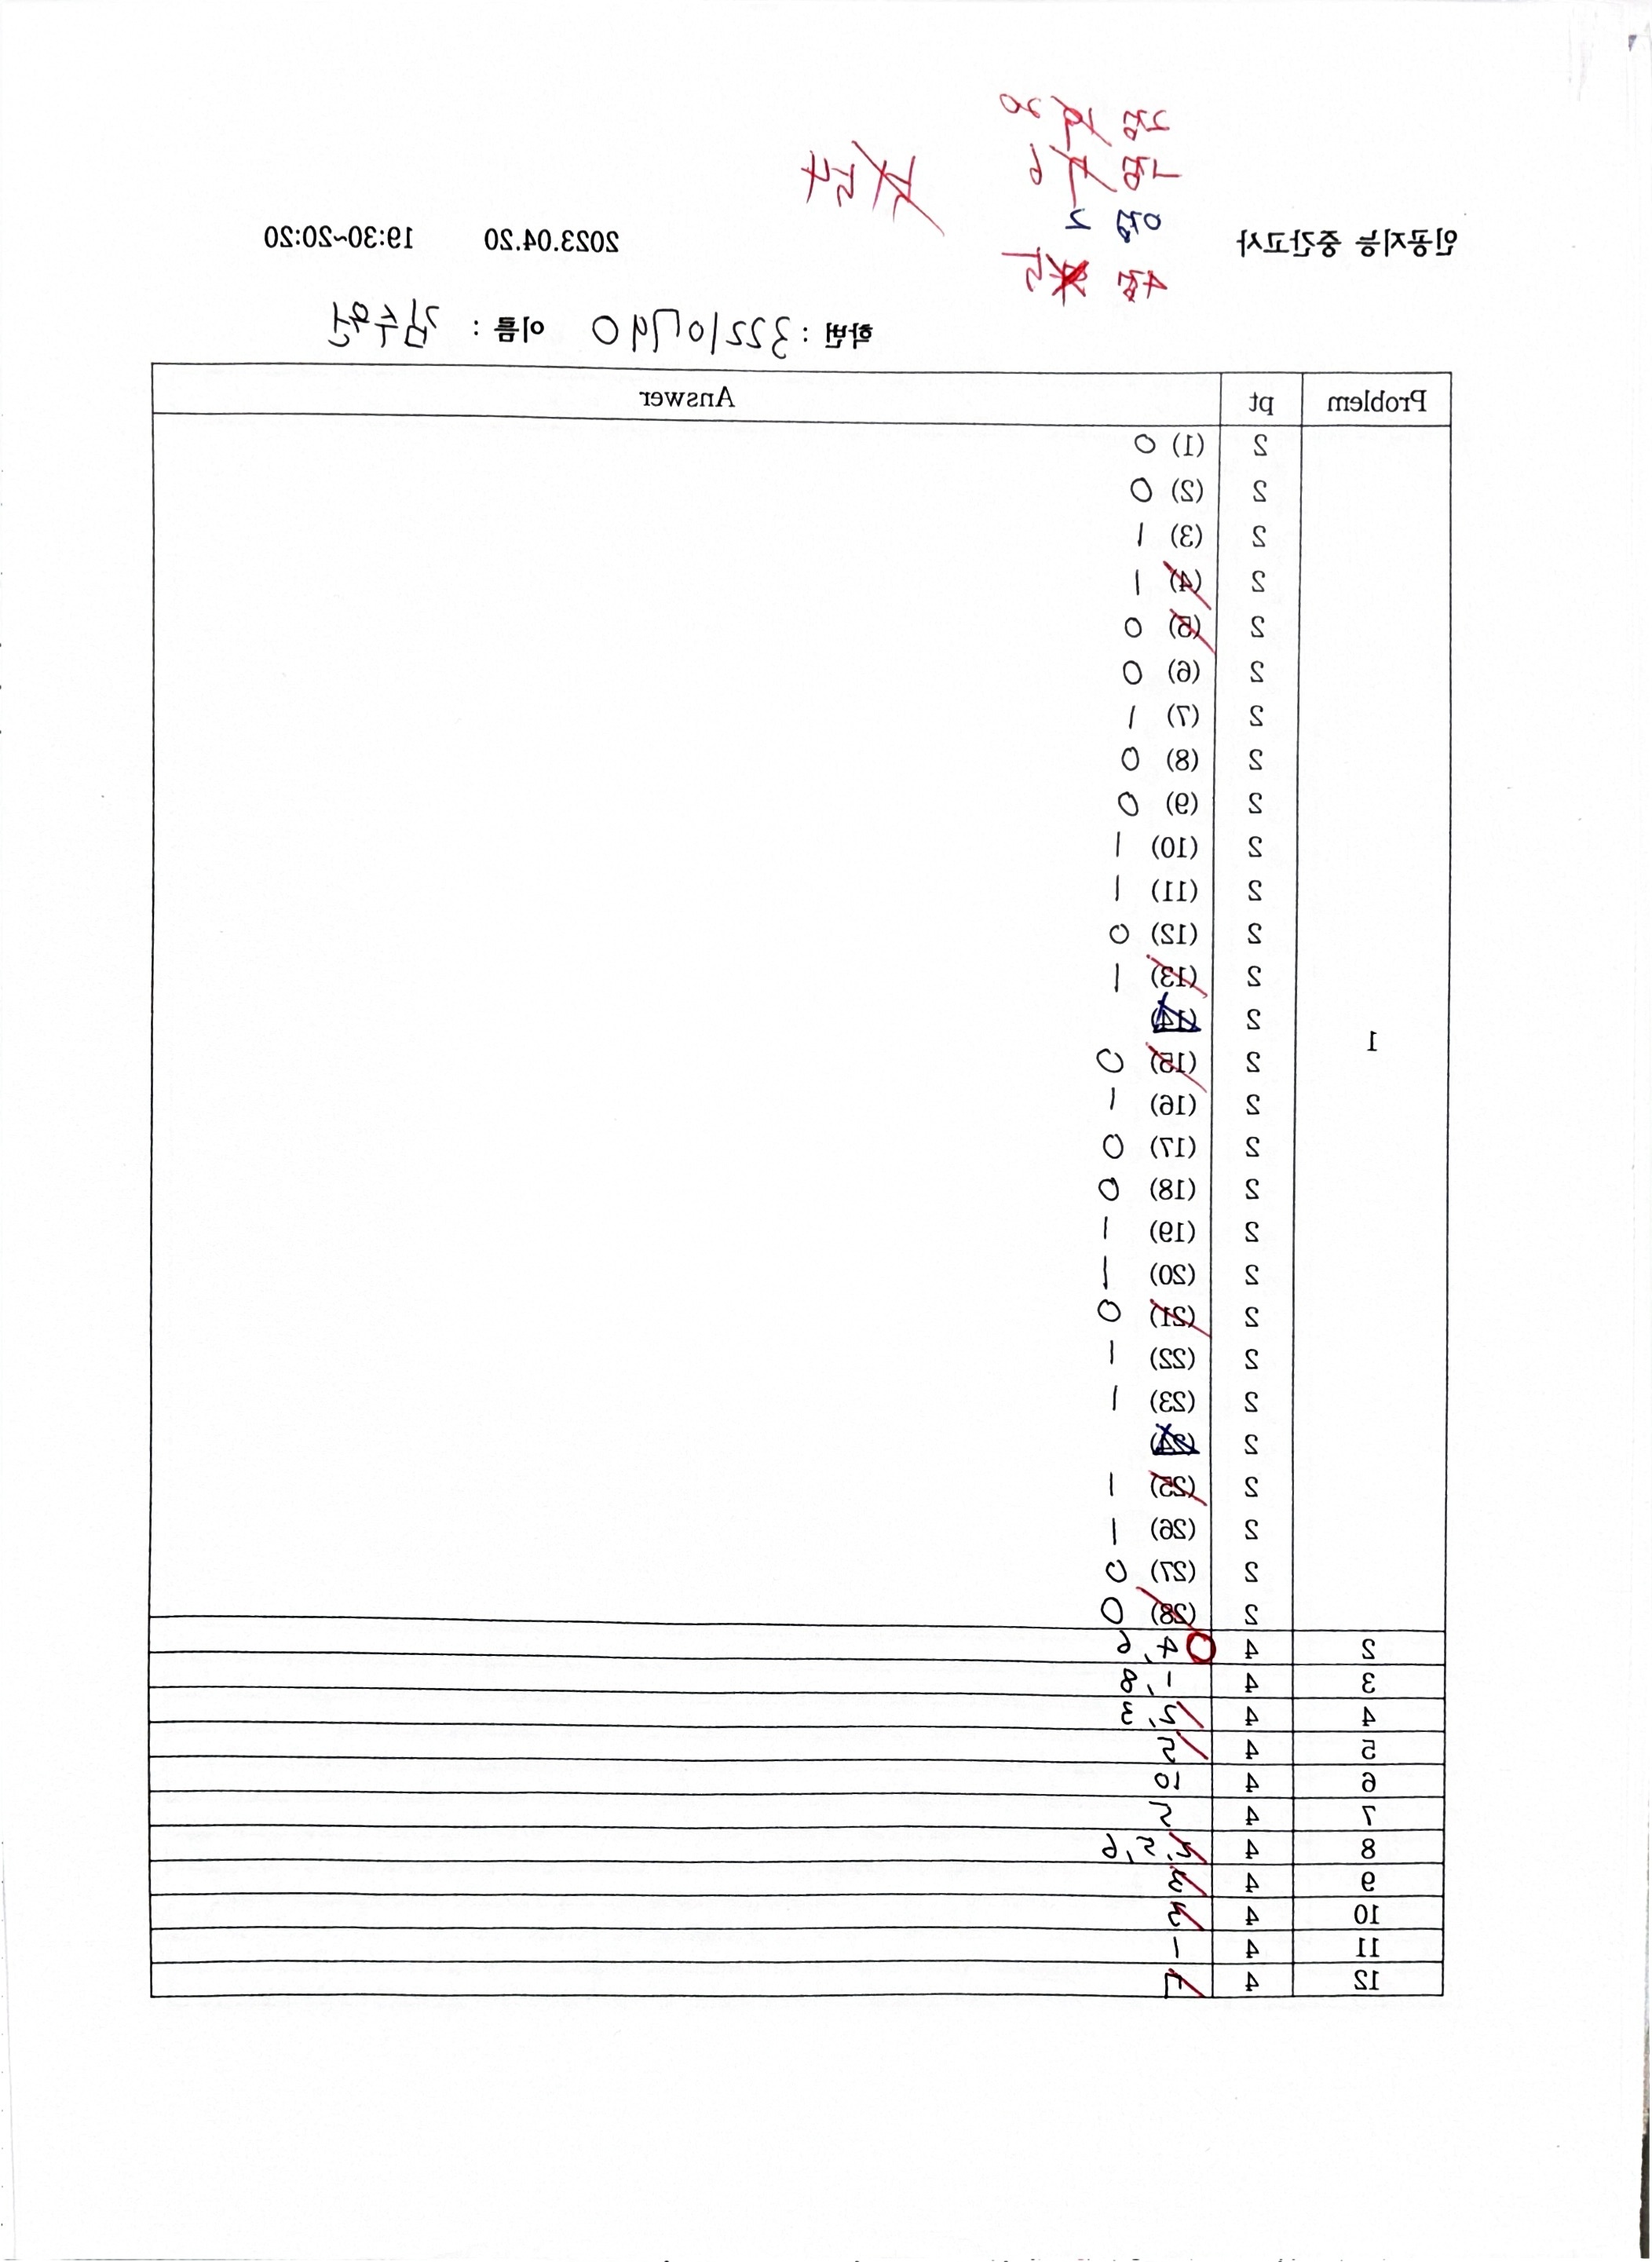 2점 20
1점 6
인공지능 중간고사 0점 2 54 2023.04.20 19:30~20:20
4점 5
학번 : 32210790 이름 : 김수현
Problem pt Answer
1
2 (1) 0
2 (2) 0
2 (3) 1
2 (4) 1
2 (5) 0
2 (6) 0
2 (7) 1
2 (8) 0
2 (9) 0
2 (10) 1
2 (11) 1
2 (12) 0
2 (13) 1
2 (14)
2 (15) 0
2 (16) 1
2 (17) 0
2 (18) 0
2 (19) 1
2 (20) 1
2 (21) 0
2 (22) 1
2 (23) 1
2 (24)
2 (25) 1
2 (26) 1
2 (27) 0
2 (28) 0
2 4 4, 6
3 4 1, 8
4 4 5, 3
5 4 2
6 4 10
7 4 2
8 4 5, 2, 6
9 4 3
10 4 3
11 4 1
12 4 7